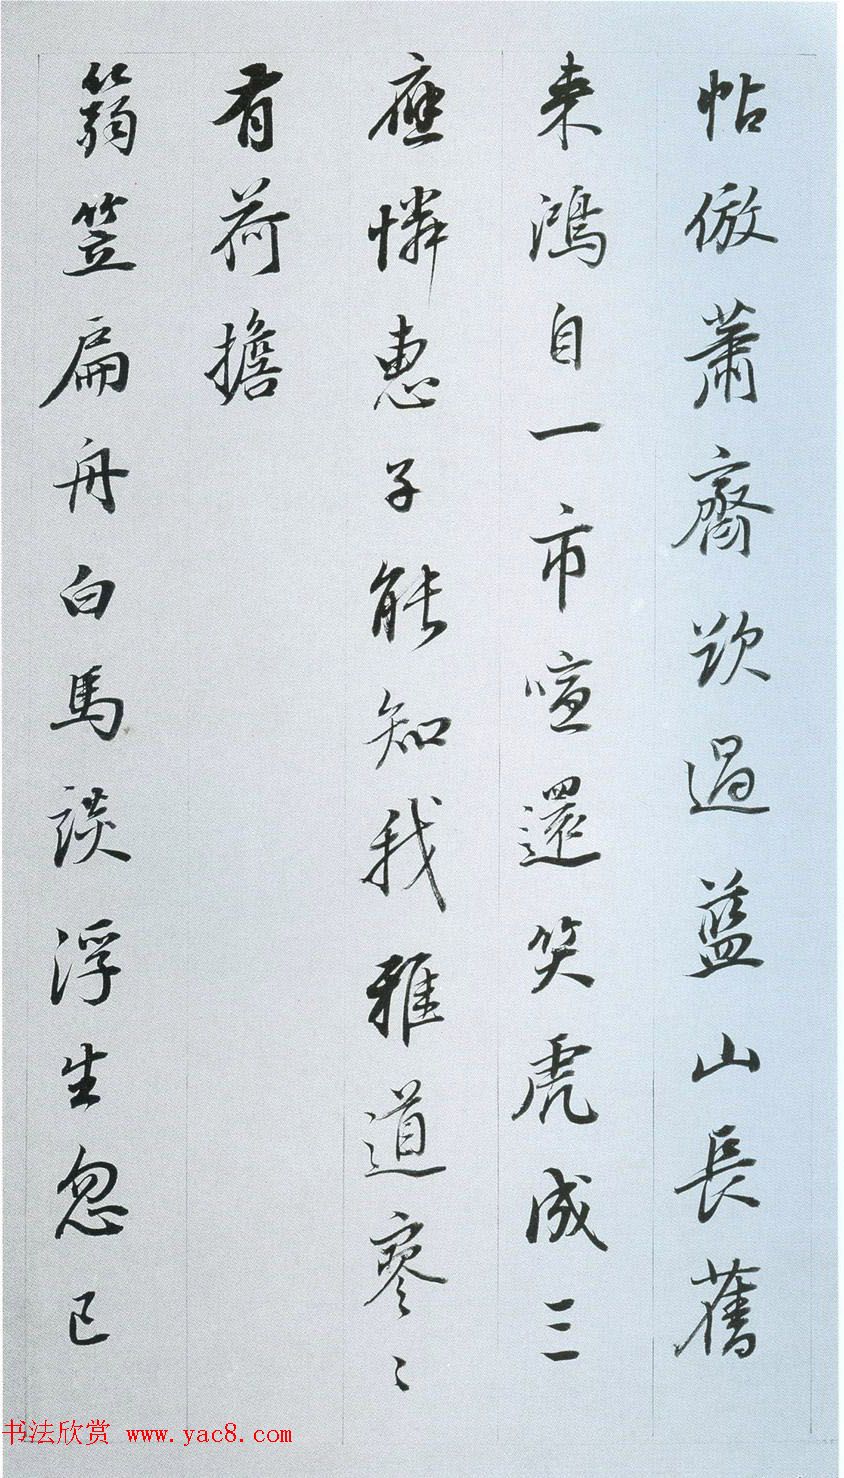 帖倣蕭齋過藍山長舊
来鴻自一市喧還笑虎成三
應憐惠子能知我雅道寥〻
有荷擔
篛笠扁舟白馬談浮生忽已
书法欣赏 www.yac8.com